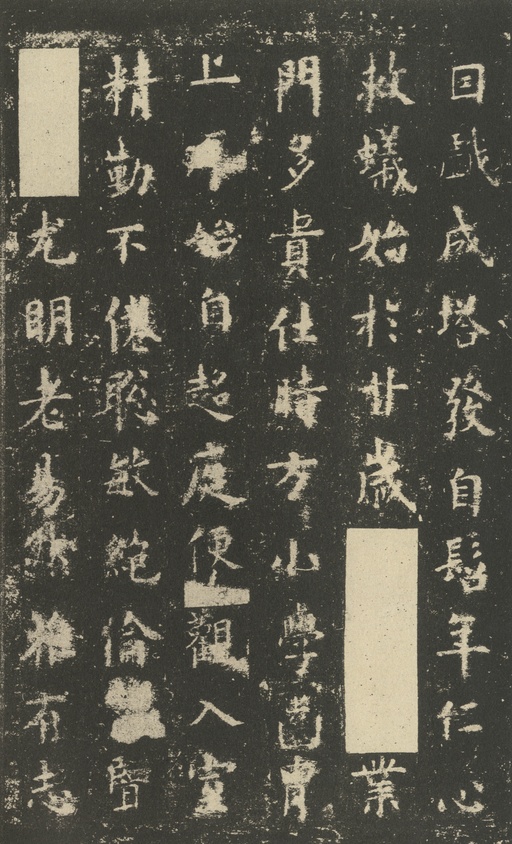 因戲成塔發自髫年仁心
救蟻始於廿歲業
門多貴仕時方小學齒胄
上始自超庭便觀入室
精勤不倦聰敏絶倫
尤明老易雅有志